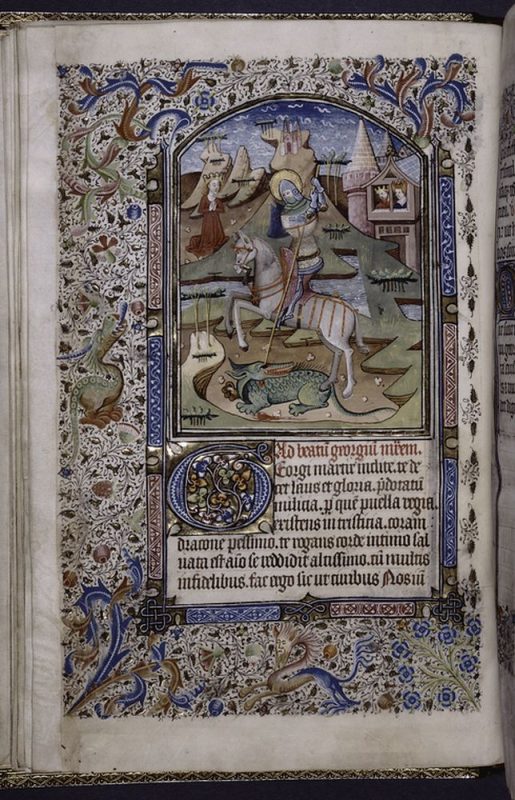 Ad beatū georgiū m̄rem.
Georgi martir inclite. te de
cet laus et gloria. p̄dotatū
milicia. p quē puella regia
existens in tristicia. coram
dracone pessimo. te rogans corde intimo sal
uata est se reddidit altissimo. cū multis
infidelibus. fac ergo sic ut ciuibus Nos